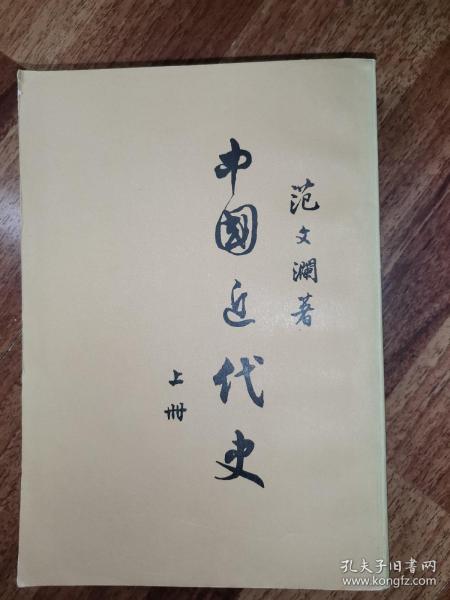 范文瀾著
中國近代史
上册
孔夫子旧书网
www.kongfz.com